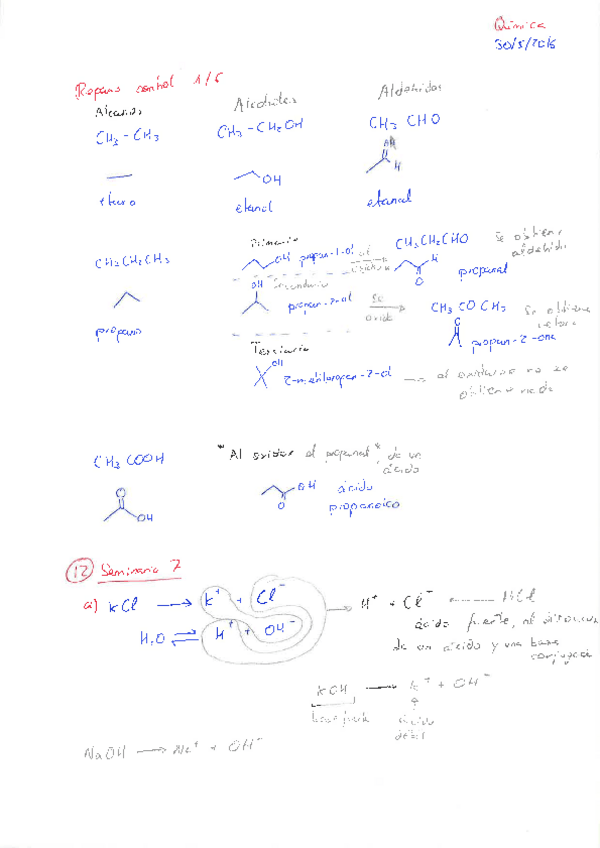 Química
30/5/2016
Repaso control 1/6
Alcanos
Alcoholes
Aldehidos
CH3 - CH3
CH3 - CH2OH
CH3 CHO
OH
H
etano
etanol
etanal
Primario
CH3CH2CH3
OH propan-1-ol
al oxidarse
CH3CH2CHO
Se obtiene aldehido
H
O
propanal
OH
Secundario
propan-2-ol
Se oxida
CH3 CO CH3
Se obtiene cetona
O
propano
propan-2-ona
Terciario
OH
2-metilpropan-2-ol → al oxidarse no se
obtiene nada
CH3 COOH
*Al oxidar el propanal* da un
ácido
O
OH
OH
O
ácido
propanoico
12 Seminario 7
a) KCl → K+ + Cl-
H2O ⇌ H+ + OH-
→ H+ + Cl- HCl
ácido fuerte, al
de un ácido y una base
conjugada
KOH → K+ + OH-
base fuerte
ácido
débil
NaOH → Na+ + OH-